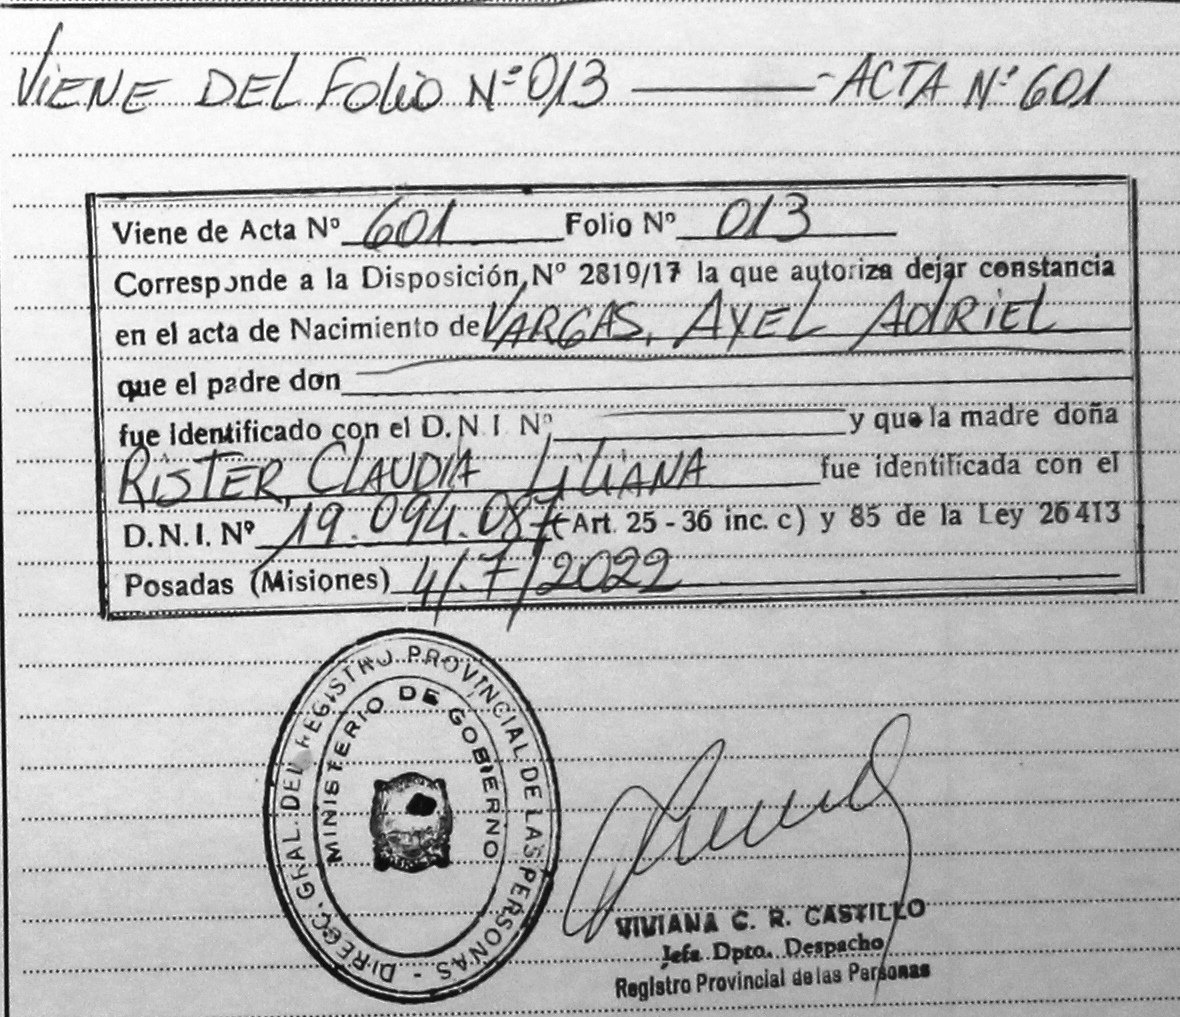 VIENE DEL FOLIO Nº 013 ——— - ACTA Nº 601
Viene de Acta Nº 601 Folio Nº 013
Corresponde a la Disposición Nº 2819/17 la que autoriza dejar constancia
en el acta de Nacimiento de VARGAS, AYEL ADRIEL
que el padre don
fue identificado con el D.N.I. Nº y que la madre doña
RISTER, CLAUDIA LILIANA fue identificada con el
D.N.I. Nº 19.094.087 (Art. 25 - 36 inc. c) y 85 de la Ley 26413
Posadas (Misiones) 4/7/2022
DIRECC. GRAL. DEL REGISTRO PROVINCIAL DE LAS PERSONAS -
MINISTERIO DE GOBIERNO
VIVIANA C. R. CASTILLO
Jefa Dpto. Despacho
Registro Provincial de las Personas